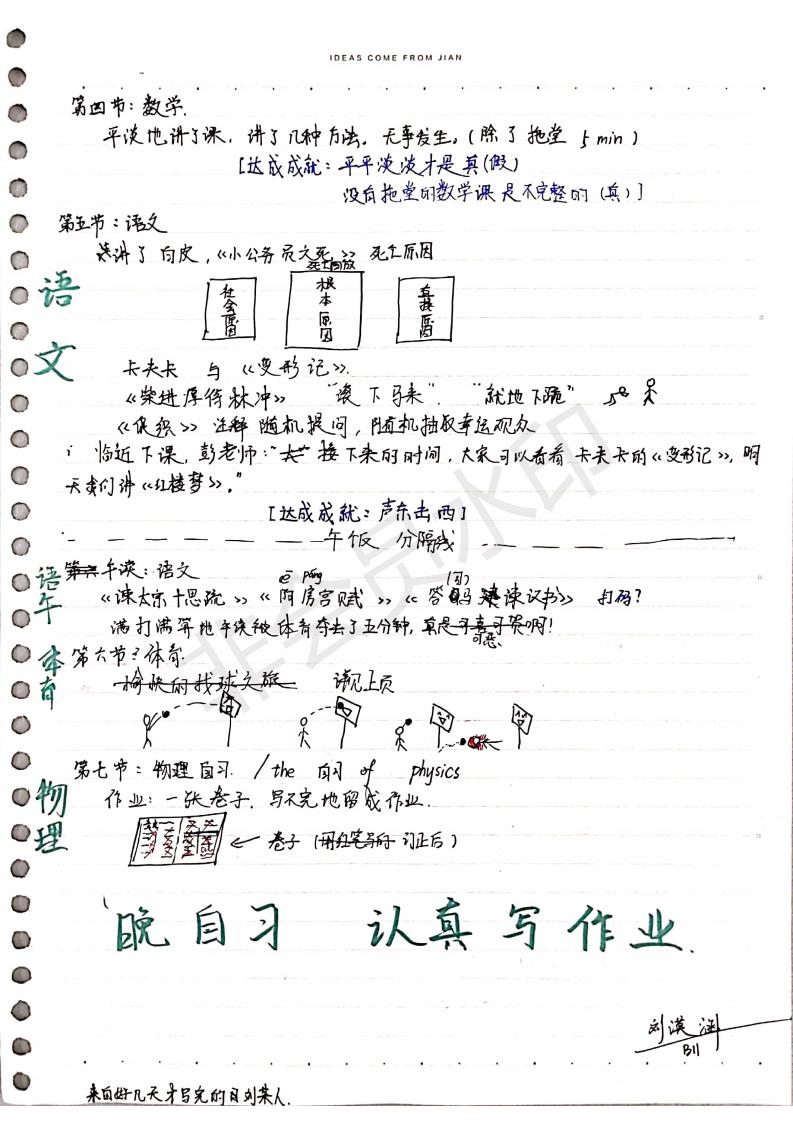 IDEAS COME FROM JIAN
第四节：数学.
平淡地讲了课，讲了几种方法。无事发生。(除了拖堂 5 min)
[达成成就：平平淡淡才是真(假)
没有拖堂的数学课是不完整的(真)]
第五节：语文
讲了白皮，《小公务员之死》死亡原因
语文
社会原因
根本原因
直接原因
卡夫卡 与 《变形记》.
《柴进厚待林冲》 "滚下马来". "就地下跪"
《促织》 注释随机提问，随机抽取幸运观众
临近下课，彭老师："接下来的时间，大家可以看看卡夫卡的《变形记》，明
天我们讲《红楼梦》。"
[达成成就：声东击西]
午饭 分隔线
语午
第六午读：语文
ē páng
《谏太宗十思疏》《阿房宫赋》《答司马谏议书》 打码?
满打满算地午读被体育夺去了五分钟，真是可喜可贺啊!
可恶
体育
第六节：体育
愉快的找球之旅 请见上页
第七节：物理自习. / the 自习 of physics
物理
作业：一张卷子. 写不完地留成作业.
← 卷子 (用红笔写的 订正后)
晚自习 认真写作业.
刘漠涵
B11
来自好几天才写完的目刘某人.
非会员水印